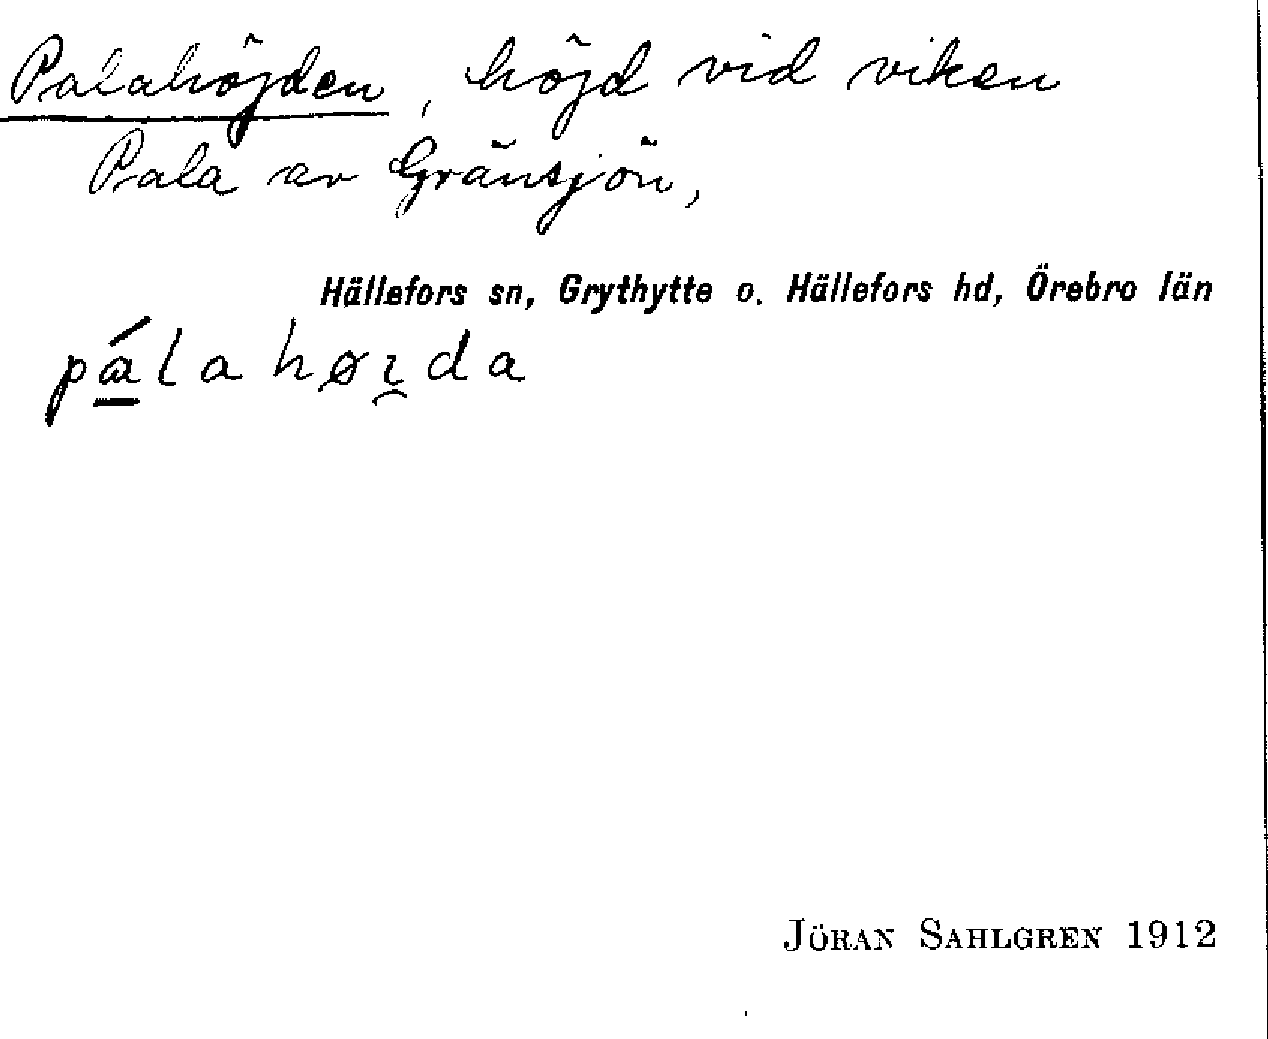 Palahöjden, höjd vid viken
Pala av Gränsjön,
Hällefors sn, Grythytte o. Hällefors hd, Örebro län
pá̱lahøı̯da
JÖRAN SAHLGREN 1912